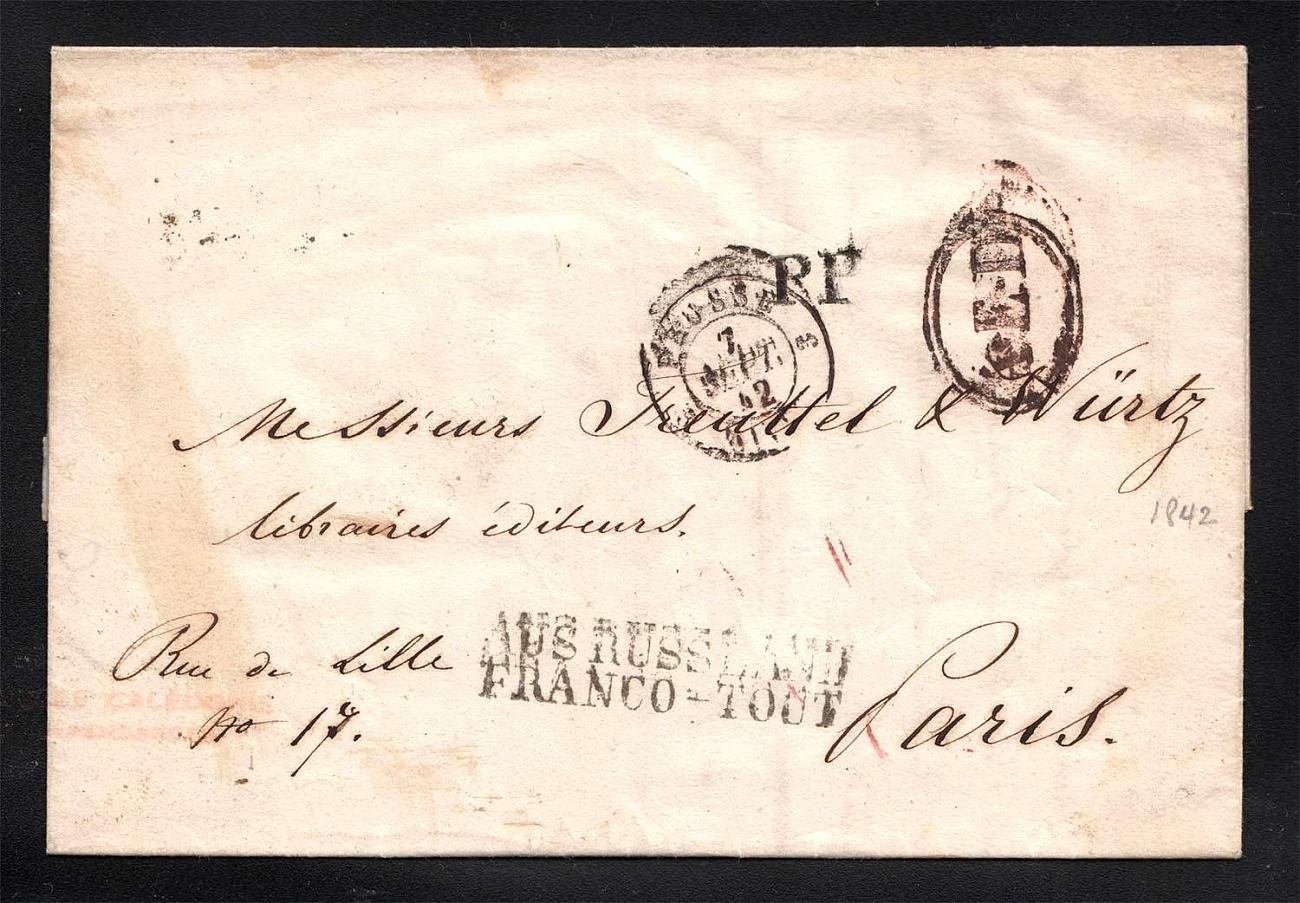 PP
PRUSSE
7
SEPT.
42
Messieurs Treuttel & Würtz
libraires éditeurs.
1842
AUS RUSSLAND
FRANCO-TOUT
Rue de Lille
No 17.
Paris.